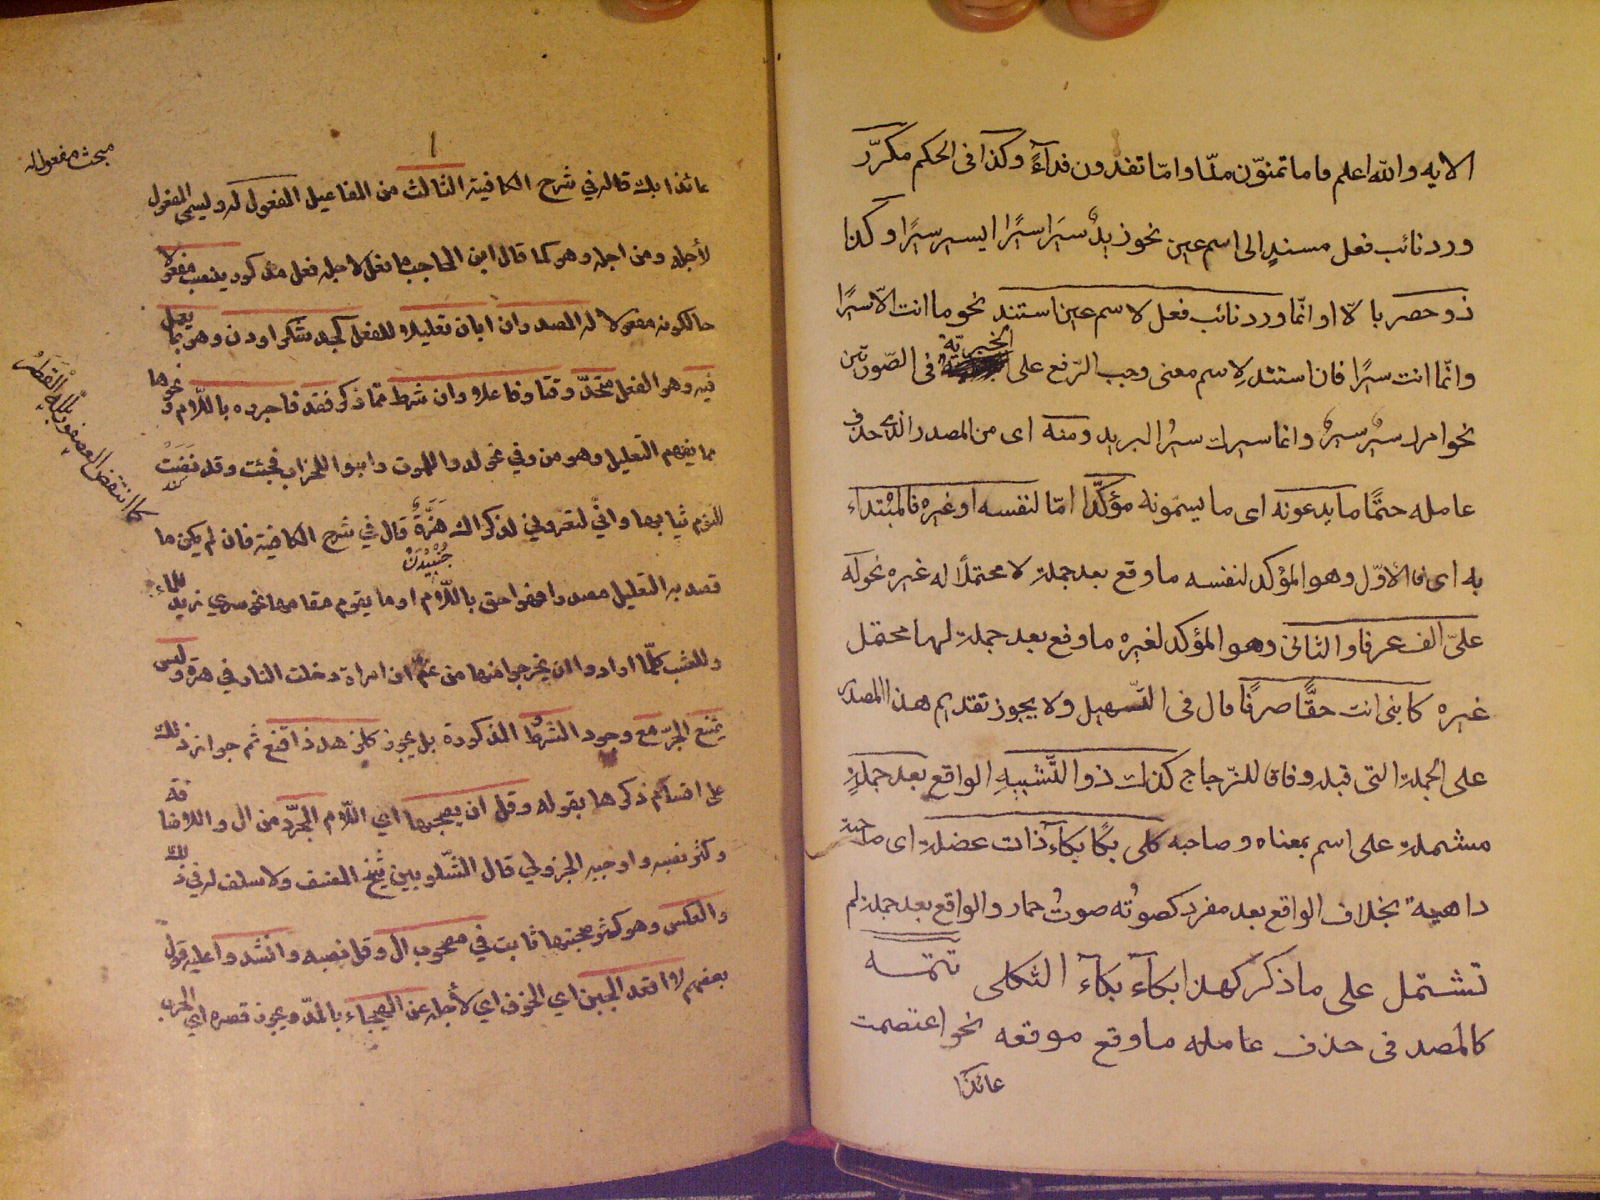 الايه والله اعلم فاما تمنّون منّا وامّا تفدون فدآءً وكذا فى الحكم مكرّر
ورد نائب فعل مسندٍ الى اسم عين نحو زيدٌ سيرًا سيرًا اى يسير سيرًا وكذا
ذو حصر بالّا او انّما ورد نائب فعل لاسم عين استند نحو ما انت الّا سيرًا
وانّما انت سيرًا فان استند لاسم معنى وجب الرّفع على الخبريّة فى الصّورتين
نحو امرك سيرٌ سيرٌ وانما سيرك سيرُ البريد ومنه اى من المصدر الذى حذف
عامله حتمًا ما يدعونه اى ما يسمّونه مؤكّدًا امّا لنفسه او غيره فالمبْتداء
به اى الأوّل وهو المؤكد لنفسه ما وقع بعد جملة لا محتمل له غيره نحو له
علىّ الف عرفا والثانى وهو المؤكد لغيره ما وقع بعد جملة لها محتمل
غيره كابنى انت حقًّا صرفًا قال فى التّسهيل ولا يجوز تقديم هذا المصدر
على الجملة التى قبله وفاقا للزّجاج كذاك ذو التّشبيهِ الواقع بعد جملةٍ
مشتملة على اسم بمعناه وصاحبه كلى بكًا بكآءَ ذات عضلة اى صاحبة
داهية بخلاف الواقع بعد مفرد كصوتُه صوتُ حمار والواقع بعد جملة لم
تشتمل على ما ذكر كهذا بكآء بكآءَ الثكلى تتمّه
كالمصدر فى حذف عامله ما وقع موقعه نحو اعتصمت
عائذًا
مبحث مفعول له
عائذا بك قاله في شرح الكافية الثالث من المفاعيل المفعول له وليسمى المفعول
لأجله ومن اجله وهو كما قال ابن الحاجب ما فعل لاجله فعل مذكور ينصب مفعولا
حال كونه مفعولا له المصدر ان ابان تعليلا للفعل كجد شكرا ودن وهو بما يعمل
فيه وهو الفعل متّحدّ وقتا وفاعلا وان شرط ممّا ذكر فقد فاجرره باللّام ونحوها
مما يفهم التعليل وهو من وفي نحو لدوا للموت وابنوا للخراب فجئت وقد نضت
لنوم ثيابها واني لتعروني لذكراك هَزَّةٌ قال في شرح الكافية فان لم يكن ما
جُنْبِيدَنْ
كما انتفض العصفور بلّله القَطْرُ
قصد به التعليل مصدرا فهو احق باللّام او ما يقوم مقامها نحو سري زيد للماء
وللعشب كلّما ارادوا ان يخرجوا منها من غم ان امراة دخلت النار في هرة وليس
يمتنع الجرّ مع وجود الشرط المذكورة بل يجوز كلزهد ذا قنع ثم جواز ذلك
على اقسام ذكرها بقوله وقل ان يصحبها اي اللّام المجرّد من ال والاضافة
وكثر نصبه واوجبه الجزولي قال الشّلوبين شيخ المصنف ولا سلف له في ذلك
والعكس وهو كثر صحبتها ثابت في مصحوب ال وقل نصبه وانشدوا عليه قول
بعضهم لا اقعد الجبن اي الخوف اي لأجله عن الهيجاء بالمدّ ويجوز قصره اي الحرب